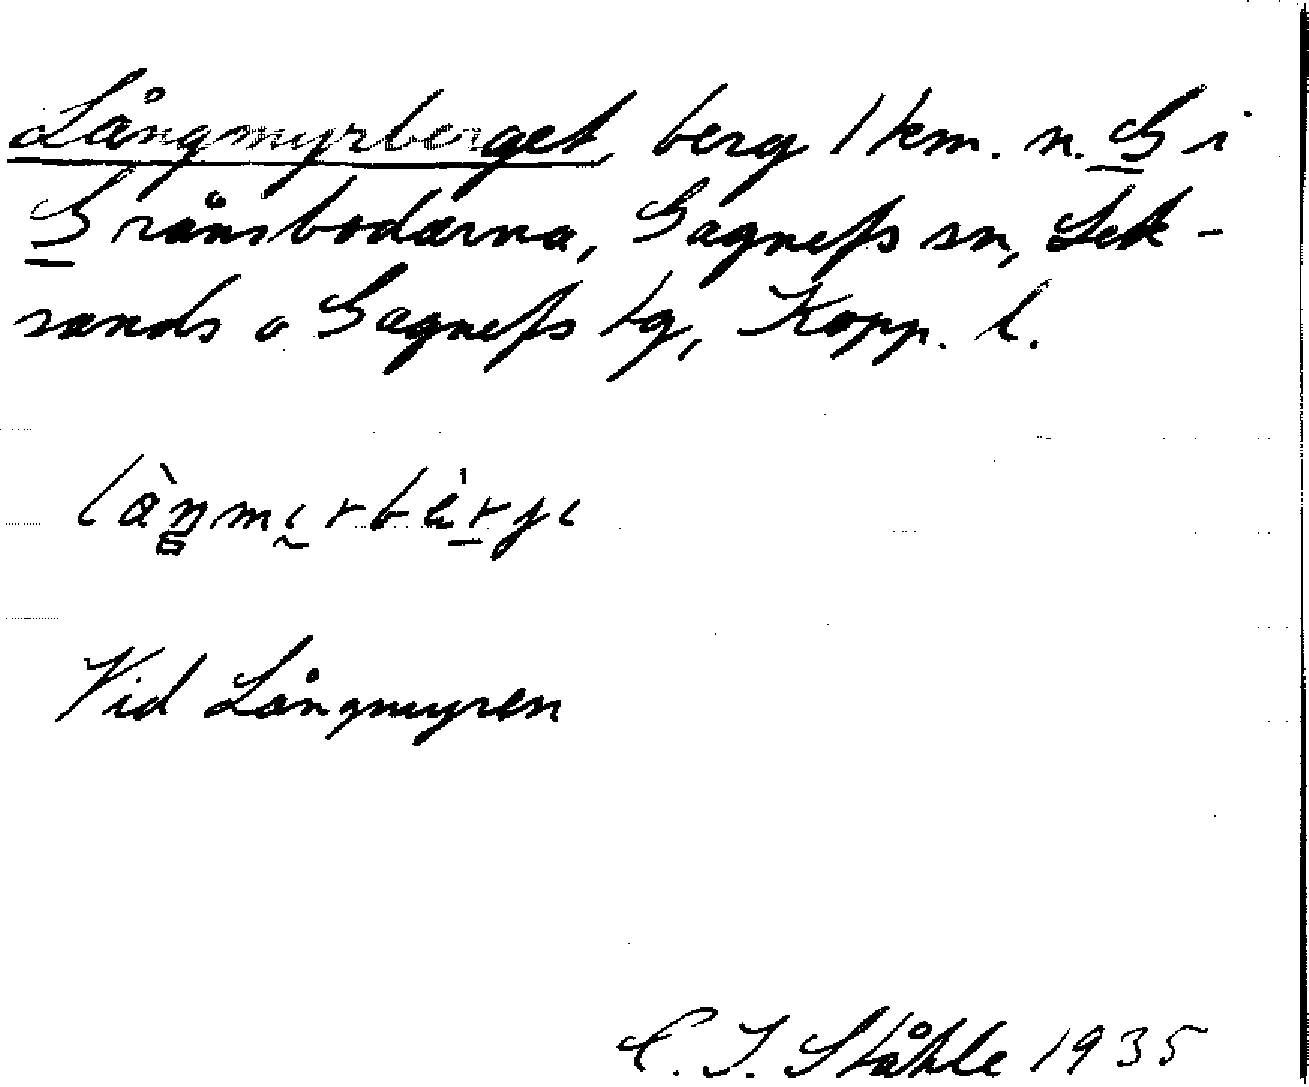 Långmyrberget, berg 1 km. n. G i
Grånsbodarna, Gagnefs sn, Lek-
sands o Gagnefs tg, Kopp. l.
Vid Långmyren
C. I. Ståhle 1935